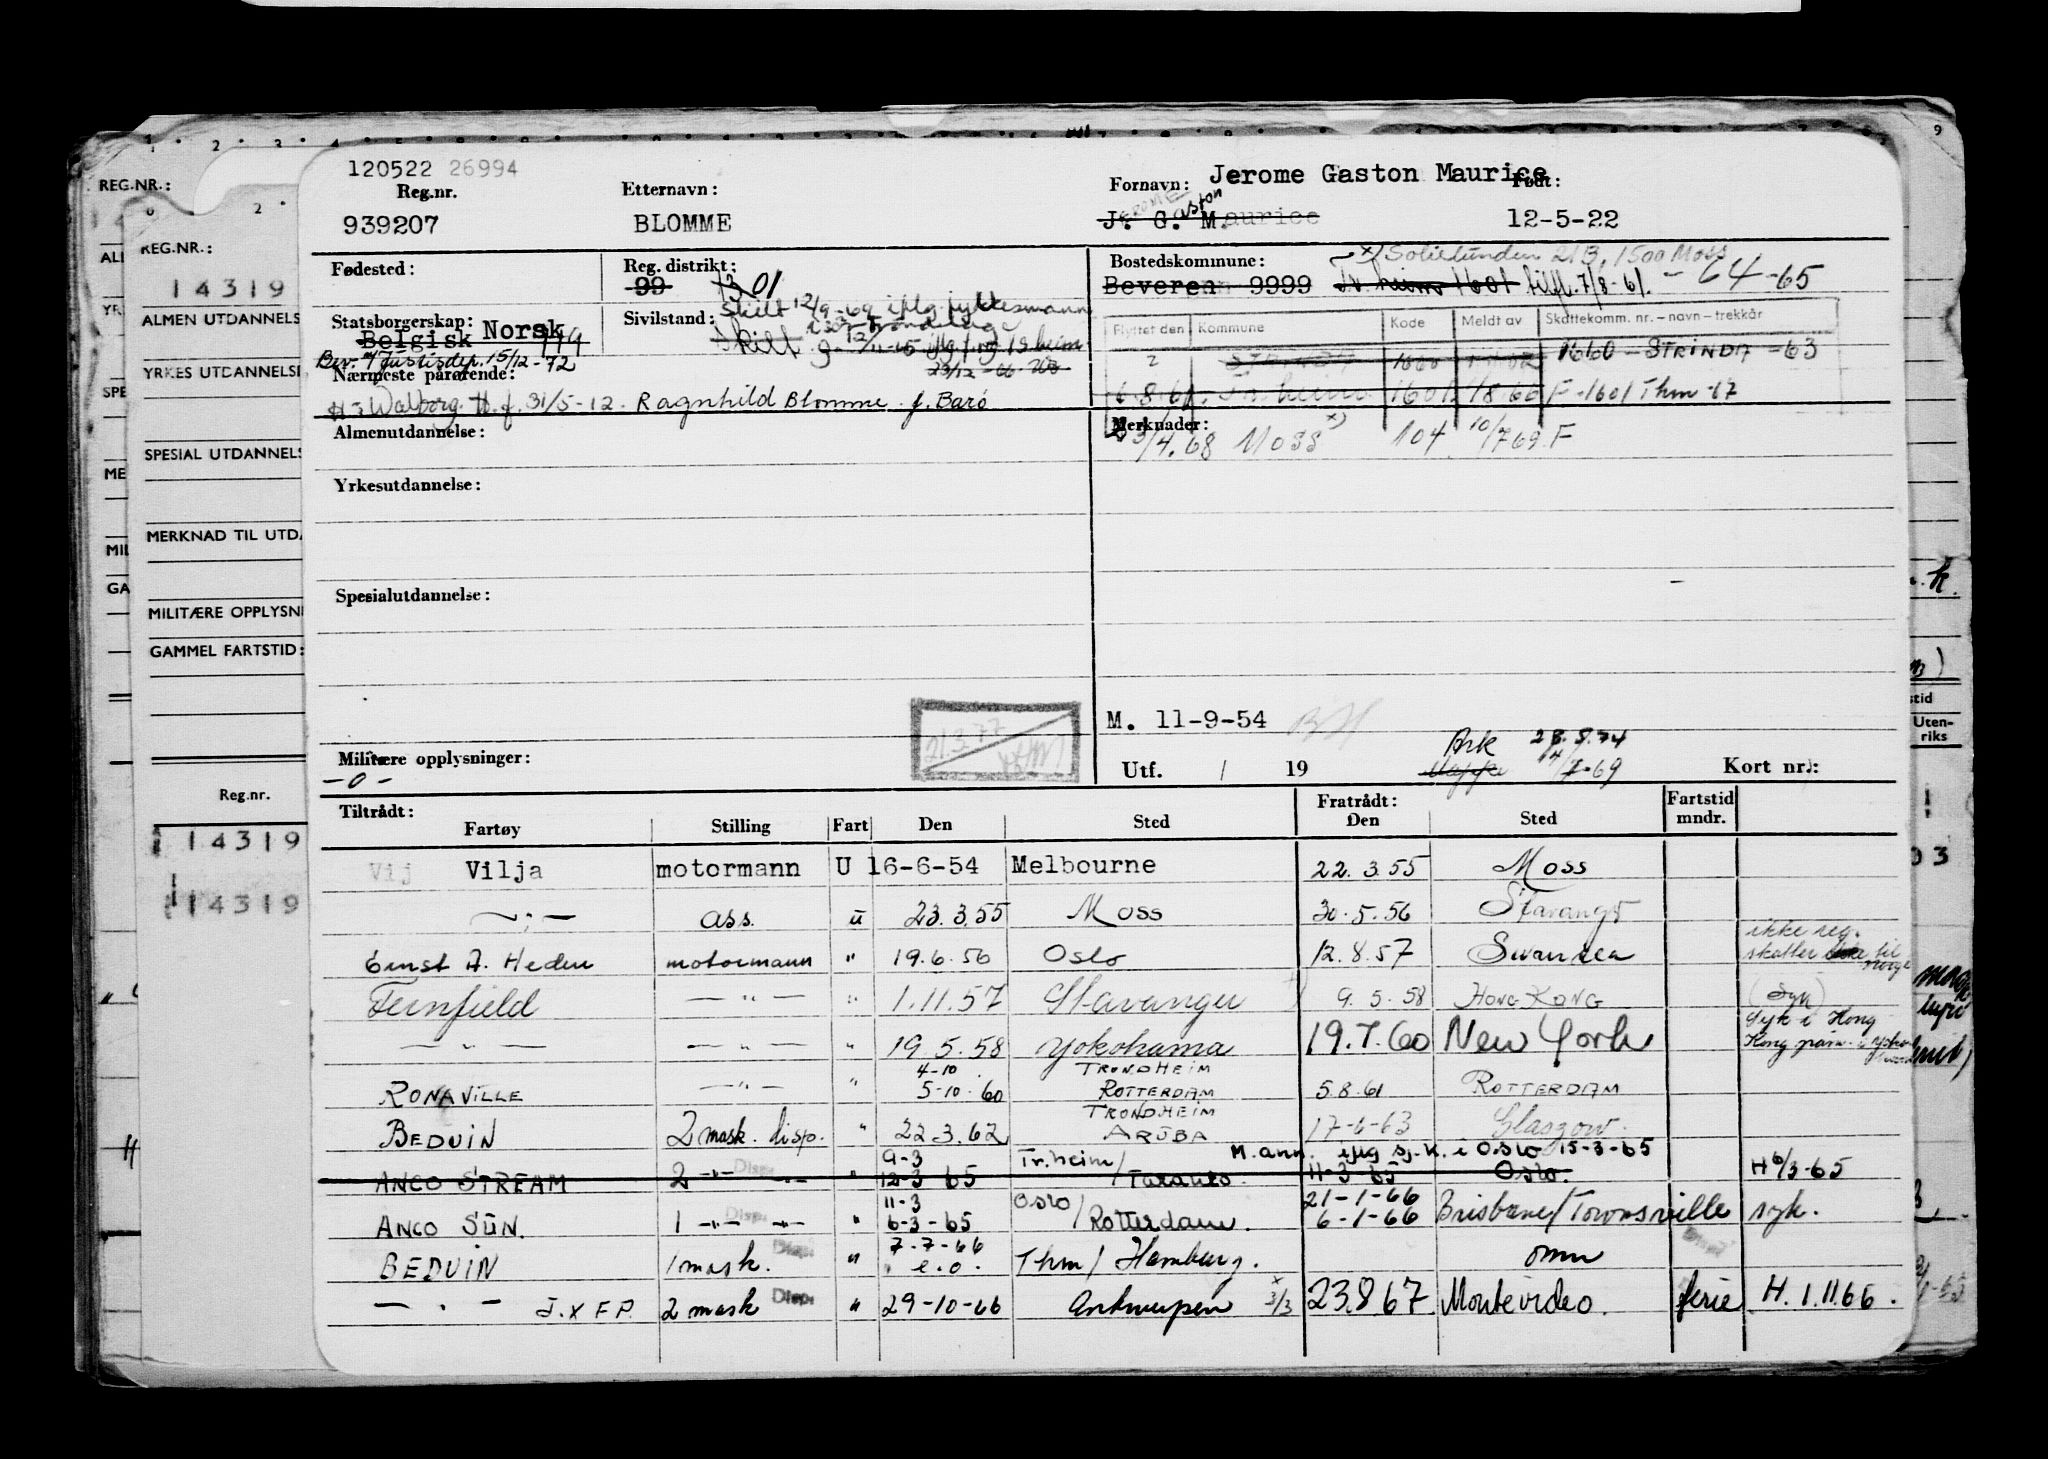 120522 26994
Reg.nr.
939207
Etternavn:
BLOMME
Fornavn: Jerome Gaston Maurice
J. G. Maurice
Født:
12-5-22
Fødested:
Reg. distrikt:
99 1301
Bostedskommune: x) Solietunden 21B, 1500 Moss
Beveren 9999 Tr. heim 1601 tilfl. 7/8-61. - 64-65
Statsborgerskap:
Belgisk Norsk
Bev. af Justisdep. 15/12-72
Sivilstand:
Skilt 12/9-69 iflg fylkesmann
Skilt
Flyttet den Kommune Kode Meldt av Skattekomm. nr.-navn-trekkår
1660 1660 - STRINDA -63
6.8.61. Tr. heim 1601 F-1601 Thm -67
Nærmeste pårørende:
Walborg f. 31/5-12. Ragnhild Blomme f. Barö
Almenutdannelse:
Merknader:
3/4.68 Moss x) 104 10/769.F
Yrkesutdannelse:
Spesialutdannelse:
M. 11-9-54
21.3.77
Militære opplysninger:
-0-
Utf. / 19
Ark 28.8.74
Mappe
Kort nr.:
Tiltrådt:
Fartøy Stilling Fart Den Sted
Fratrådt:
Den Sted
Fartstid
mndr.
Vij Vilja motormann U 16-6-54 Melbourne 22.3.55 Moss
—"— ass. u 23.3.55 Moss 30.5.56 Stavanger
ikke reg.
Ernst A. Heden motormann " 19.6.56 Oslo 12.8.57 Swansea skatter til Norge
Fernfield —"— " 1.11.57 Stavanger 9.5.58 HONG KONG (Syk)
—"— —"— " 19.5.58 Yokohama 19.7.60 New York Syk i Hong Kong
4-10 TRONDHEIM
RONAVILLE —"— " 5-10-60 ROTTERDAM 5.8.61 ROTTERDAM
TRONDHEIM
BEDUIN 2 mask. disp. " 22.3.62 ARUBA 17-6-63 Glasgow.
9-3 Tr.heim/ M.ann. iflg sj.k. i Oslo 15-3-65
ANCO STREAM 2 —"— Disp. " 12-3-65 Taranto. 11-3-65 Oslo. H 6/3-65
11-3 Oslo/ 21-1-66
ANCO SUN. 1 —"— Disp. " 6-3-65 Rotterdam. 6-1-66 Brisbane/Townsville syk.
7-7-66
BEDUIN 1 mask. Disp. " e.o. Thm/ Hamburg. omm
—"— J.x F P. 2 mask Disp. " 29-10-66 Antwerpen x 3/3 23.8.67 Montevideo. ferie H. 1.11.66.
REG.NR.:
REG.NR.:
14319
ALMEN UTDANNELS
YRKES UTDANNELSE
SPESIAL UTDANNELS
MERKNAD TIL UTD
MILITÆRE OPPLYSN
GAMMEL FARTSTID:
Reg.nr.
14319
14319
Uten-
riks